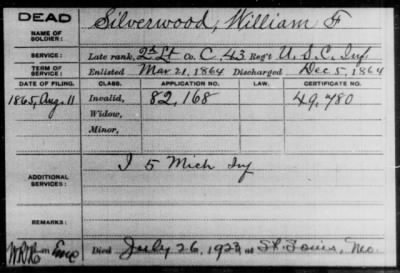 DEAD
NAME OF SOLDIER: Silverwood, William F
SERVICE: Late rank, 2d Lt Co. C, 43 Reg't U.S.C. Inf.
TERM OF SERVICE: Enlisted Mar. 21, 1864 Discharged Dec. 5, 1864
DATE OF FILING. CLASS. APPLICATION NO. LAW. CERTIFICATE NO.
1865, Aug. 11 Invalid, 82,168 49,780
Widow,
Minor,
ADDITIONAL SERVICES: I 5 Mich Inf
REMARKS:
Died July 26, 1923 at St. Louis, Mo.